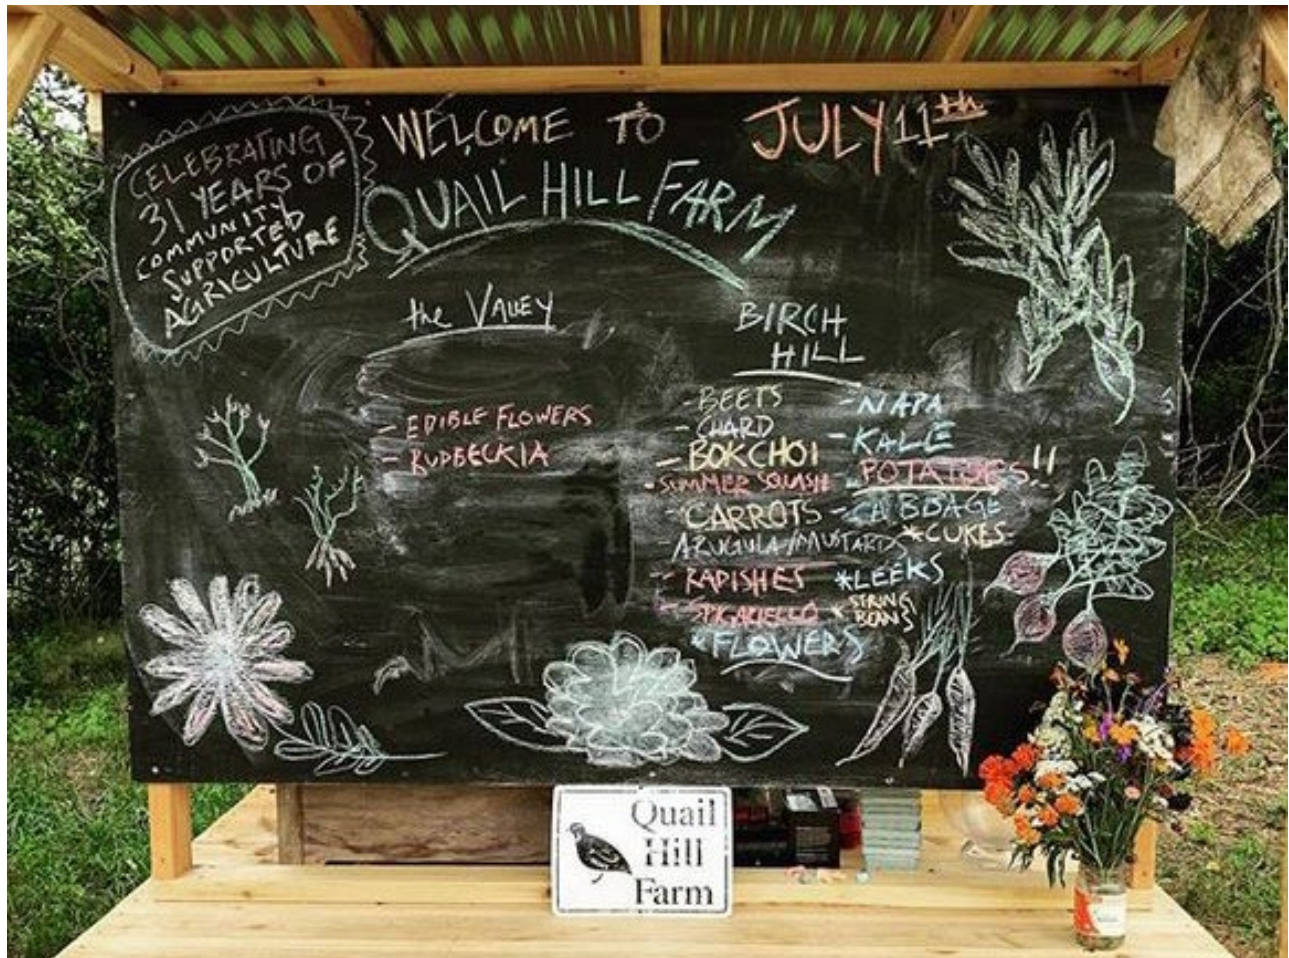 CELEBRATING
31 YEARS OF
COMMUNITY
SUPPORTED
AGRICULTURE
WELCOME TO
QUAIL HILL FARM
JULY 11th
the VALLEY
- EDIBLE FLOWERS
- RUDBECKIA
BIRCH
HILL
- BEETS
- CHARD
- BOKCHOI
- SUMMER SQUASH
- CARROTS
- ARUGULA/MUSTARDS
- RADISHES
- SPIGARIELLO
* FLOWERS
- NAPA
- KALE
- POTATOES!!
- CABBAGE
* CUKES
* LEEKS
* STRING
BEANS
Quail
Hill
Farm